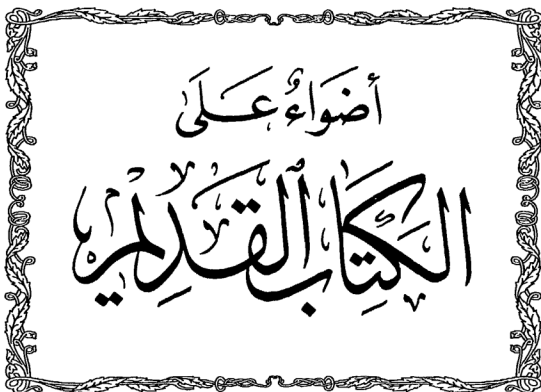 أَضْوَاءٌ عَلَى
الكِتَابِ القَدِيمِ